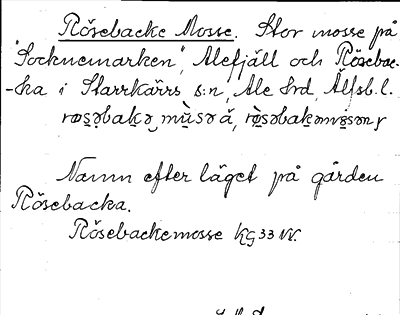 Rösebacke Mosse. Stor mosse på
"Socknemarken", Alefjäll och Rösebac-
-ka i Starrkärrs s:n, Ale hrd, Älfsb. l.
Namn efter läget på gården
Rösebacka.
Rösebackemosse KG 33 NV.